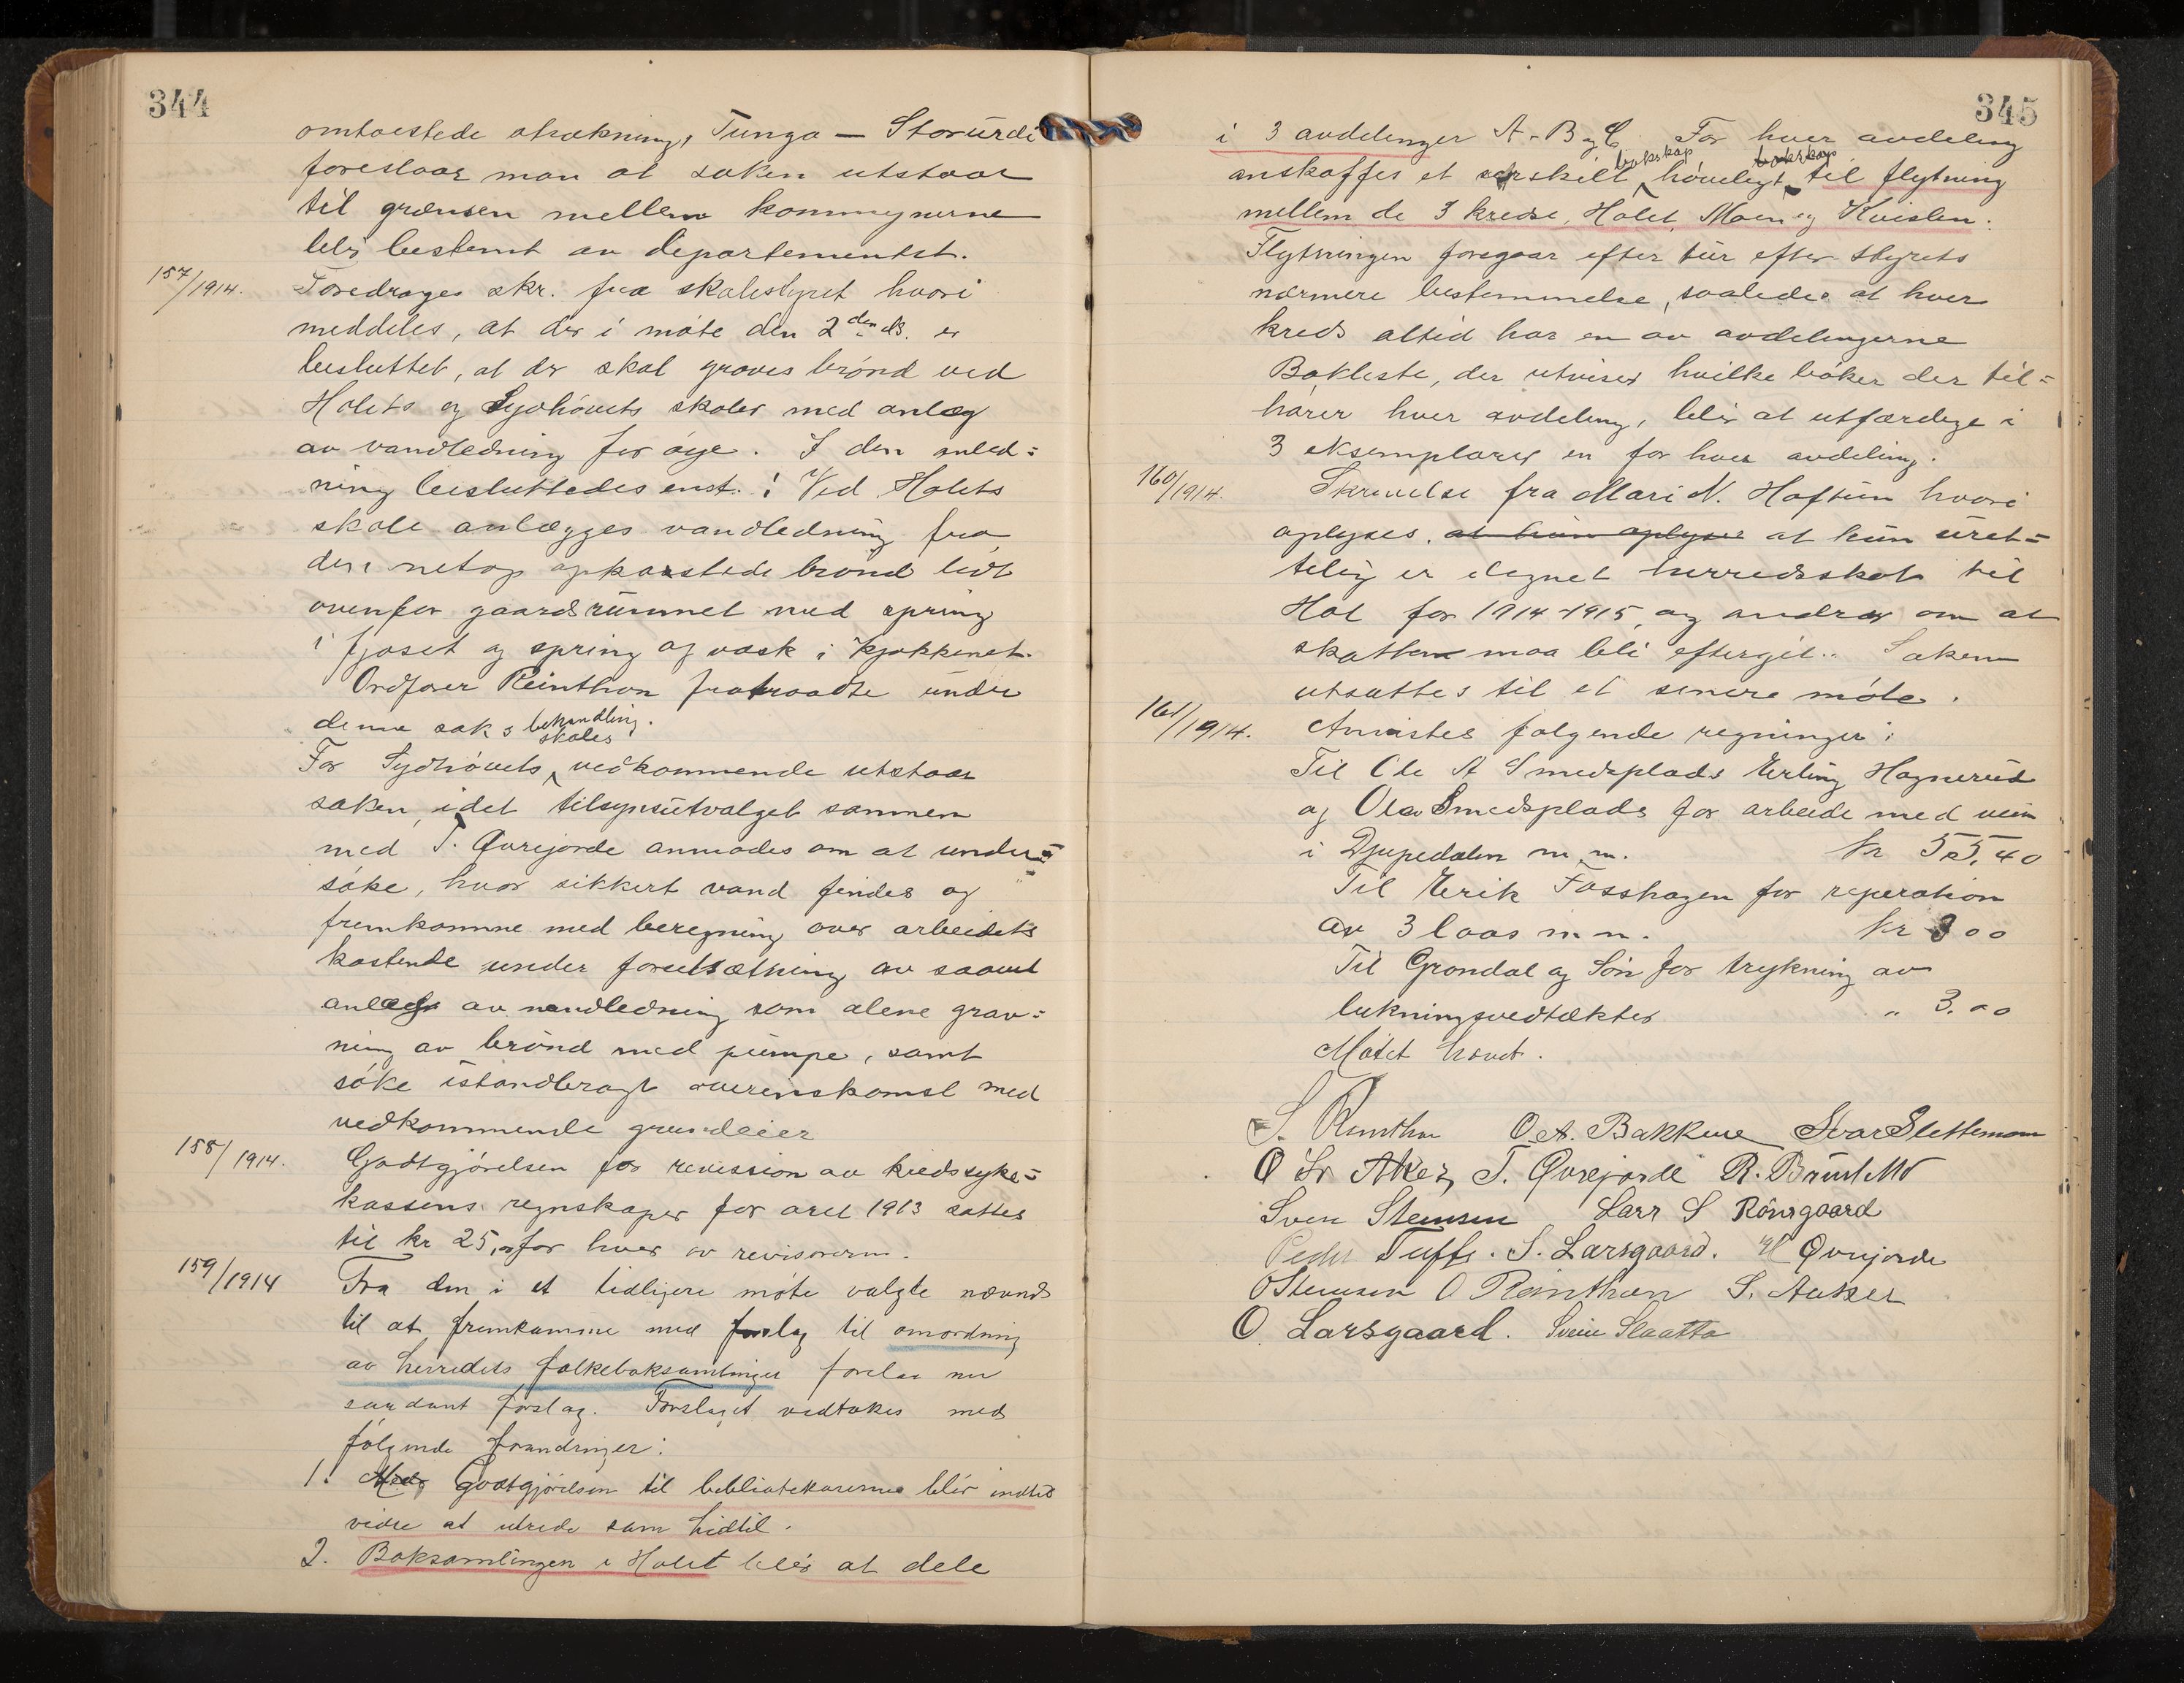 344
omtvistede strækning, Tunga — Storurdi
foreslaar man at saken utstaar
til grænsen mellem kommunerne
blir bestemt av departementet.
157/1914. Foredrages skr. fra skolestyret hvori
meddeles, at der i møte den 2den ds. er
besluttet, at der skal graves brønd ved
Holets og Sydhovets skoler med anlæg
av vandledning for øie. I den anled=
ning besluttedes enst.: Ved Holets
skole anlægges vandledning fra
den netop opkastede brønd lidt
ovenfor gaardsrummet med spring
i fjøset og spring og vask i kjøkkenet.
Ordfører Reinthon fratraadte under
denne saks behandling.
For Sydhovets skoles vedkommende utstaar
saken, idet tilsynsutvalget sammen
med T. Øvrejorde anmodes om at under=
søke, hvor sikkert vand findes og
fremkomme med beregning over arbeidets
kostende under forutsætning av saavel
anlæg av vandledning som alene grav=
ning av brønd med pumpe, samt
søke istandbragt overenskomst med
vedkommende grundeier
158/1914. Godtgjørelsen for revission av kredssyke=
kassens regnskaper for aret 1913 sattes
til kr 25,00 for hver av revisorerne.
159/1914 Fra den i et tidligere møte valgte nævnd
til at fremkomme med forslag til omordning
av herredets folkeboksamlinger forelaa nu
saadant forslag. Forslaget vedtokes med
følgende forandringer:
1. Godtgjørelsen til bibliotekarerne blir indtil
videre at utrede som hidtil.
2. Boksamlingen i Holet blir at dele
345
i 3 avdelinger A-B og C. For hver avdeling
anskaffes et særskilt bokskap høveligt bokskap til flytning
mellem de 3 kredse, Holet, Moen og Kvislen.
Flytningen foregaar efter tur efter styrets
nærmere bestemmelse, saaledes at hver
kreds altid har en av avdelingerne
Bokliste, der utviser hvilke bøker der til=
hører hver avdeling, blir at utfærdige i
3 eksemplarer en for hver avdeling.
160/1914. Skrivelse fra Mari N. Haftun hvori
oplyses, at hun oplyser at hun uret=
telig er ilignet herredsskat til
Hol for 1914-1915, og andrar om at
skatten maa bli eftergit. Saken
utsattes til et senere møte.
161/1914. Anvistes følgende regninger:
Til Ole A Smedsplads Erling Hagnerud
og Ola Smedsplads for arbeide med veien
i Djupedalen m.m. kr 55,40
Til Erik Fosshagen for reperation
av 3 laas m.m. kr 3 00
Til Grøndal og Søn for trykning av
lukningsvedtækter " 3.00
Møtet hævet.
S. Reinthon O. A. Bakkene Ivar Slettemoen
O Sr Aker T. Øvrejorde R. Brusletto
Sven Stensen Lars S Rönsgaard
Peder Tufte. S. Larsgaard. H Øvrejorde
O Stensen O Reinthon S. Anker
O Larsgaard. Svein Slaatto